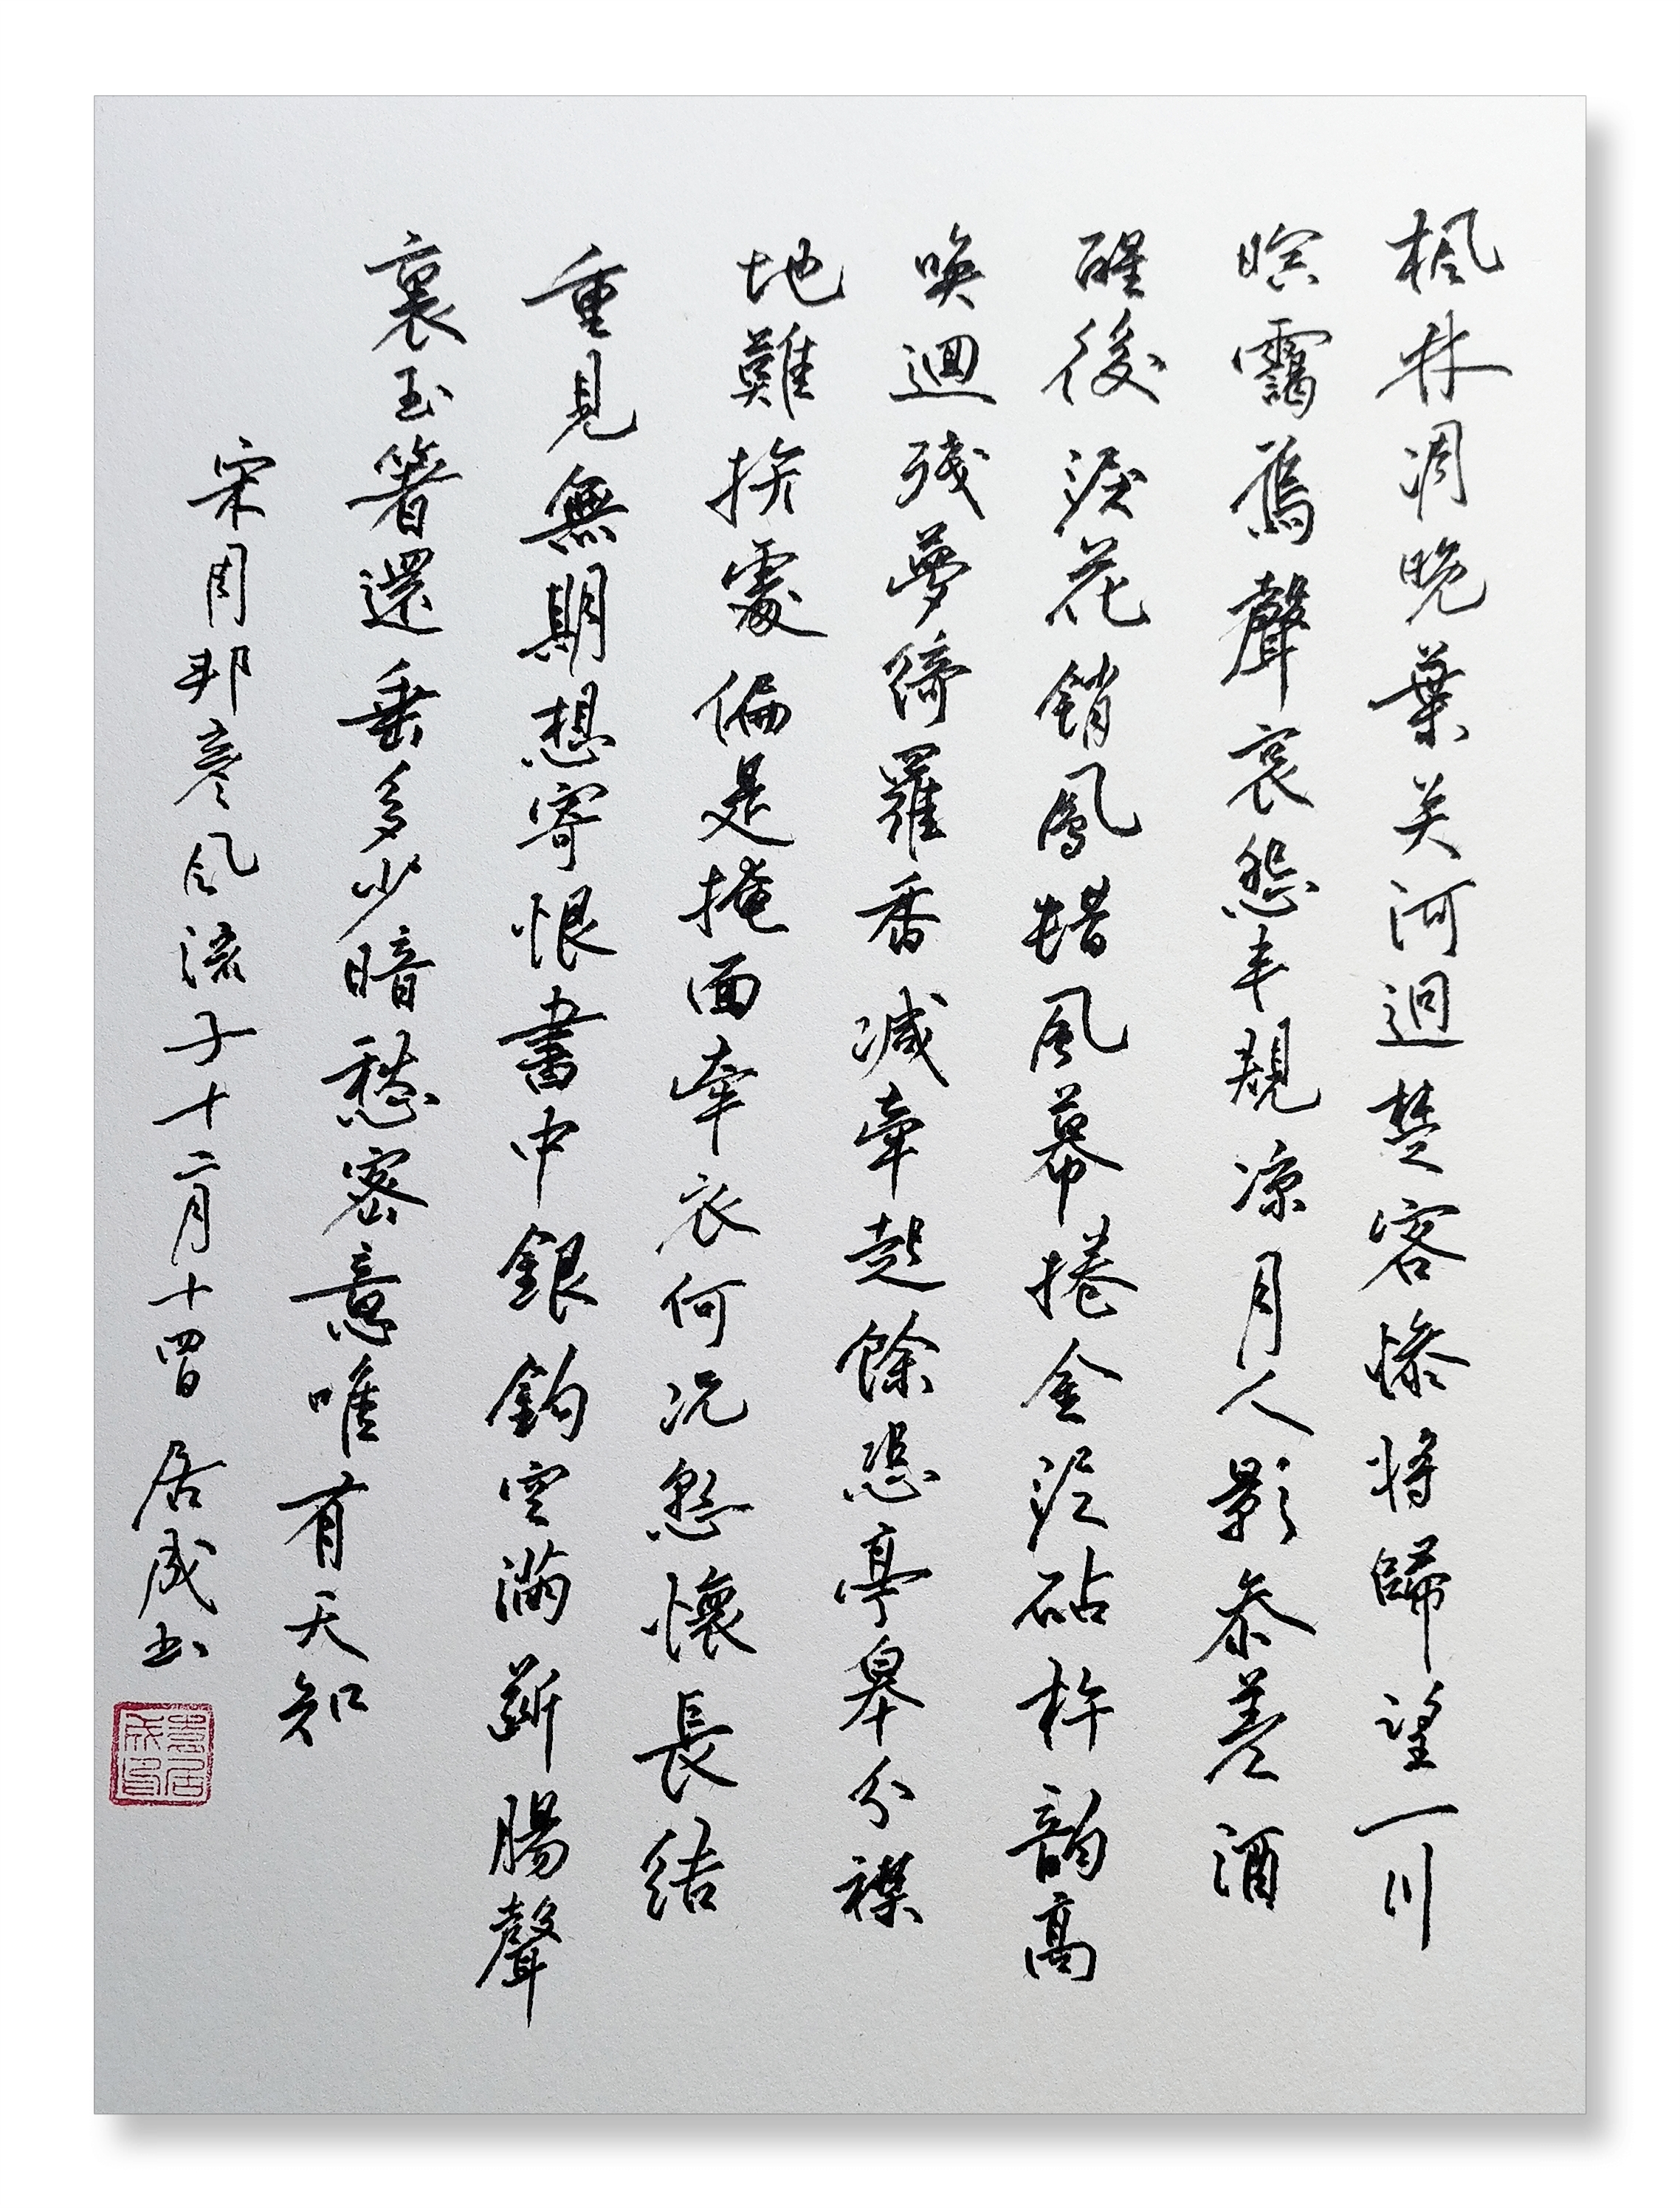 楓林凋晚葉关河迥楚客惨将歸望一川
暝靄鴈聲哀怨半規涼月人影參差酒
醒後淚花銷鳳蠟風幕捲金泥砧杵韵高
喚迴残夢綺羅香減牽起餘悲亭皋分襟
地難挨處偏是掩面牽衣何况怨懷長結
重見無期想寄恨書中銀鈎空滿斷腸聲
裏玉箸還垂多少暗愁密意唯有天知
宋周邦彦风流子十二月十四日居成书